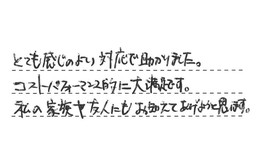 とても感じのよい対応で助かりました。
コストパフォーマンス的に大満足です。
私の家族や友人にもお知えてあげようと思います。